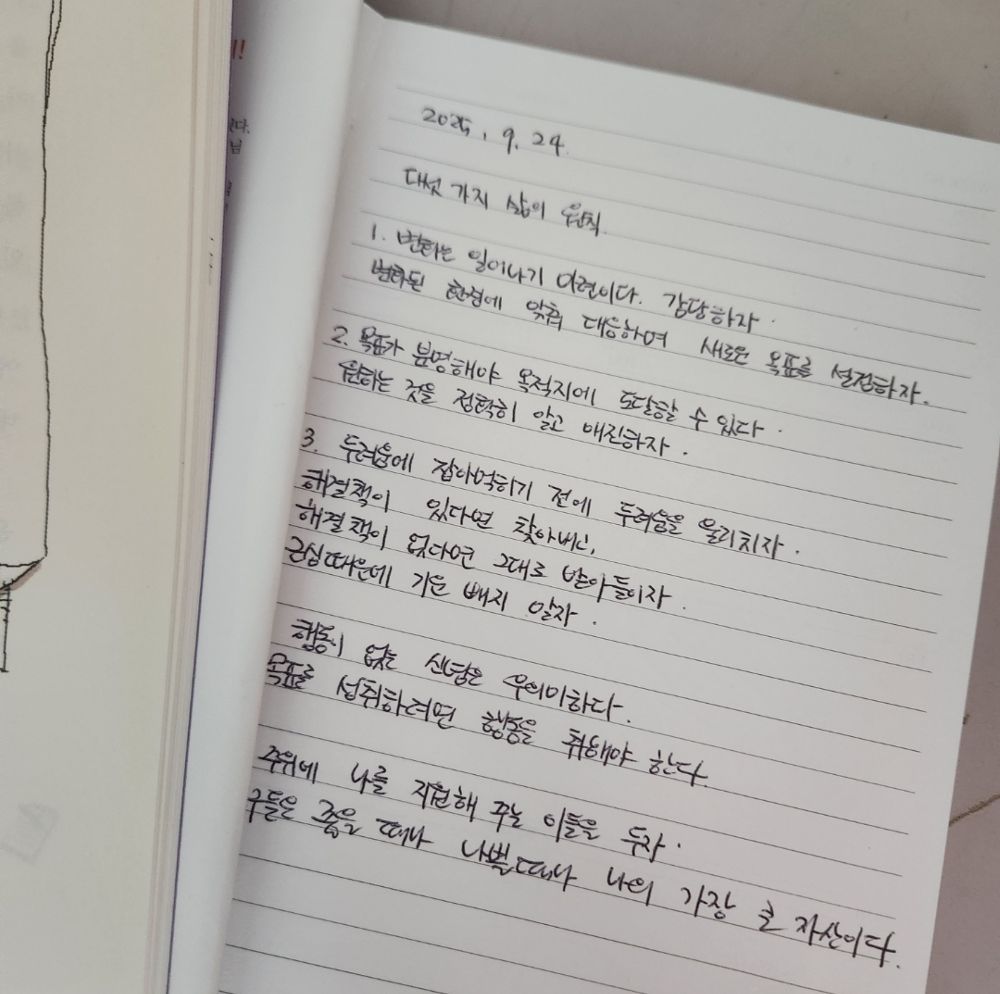 !
다.
님
2025. 9. 24.
다섯 가지 삶의 원칙.
1. 변화는 일어나기 마련이다. 감당하자.
변화된 환경에 맞춰 대응하며 새로운 목표를 설정하자.
2. 목표가 분명해야 목적지에 도달할 수 있다.
원하는 것을 정확히 알고 매진하자.
3. 두려움에 잡아먹히기 전에 두려움을 물리치자.
해결책이 있다면 찾아내고,
해결책이 없다면 그대로 받아들이자.
근심때문에 기운 빼지 말자.
행동이 없는 신념은 무의미하다.
목표를 성취하려면 행동을 취해야 한다.
주위에 나를 지원해 주는 이들을 두자.
구들은 좋을 때나 나쁠때나 나의 가장 큰 자산이다.